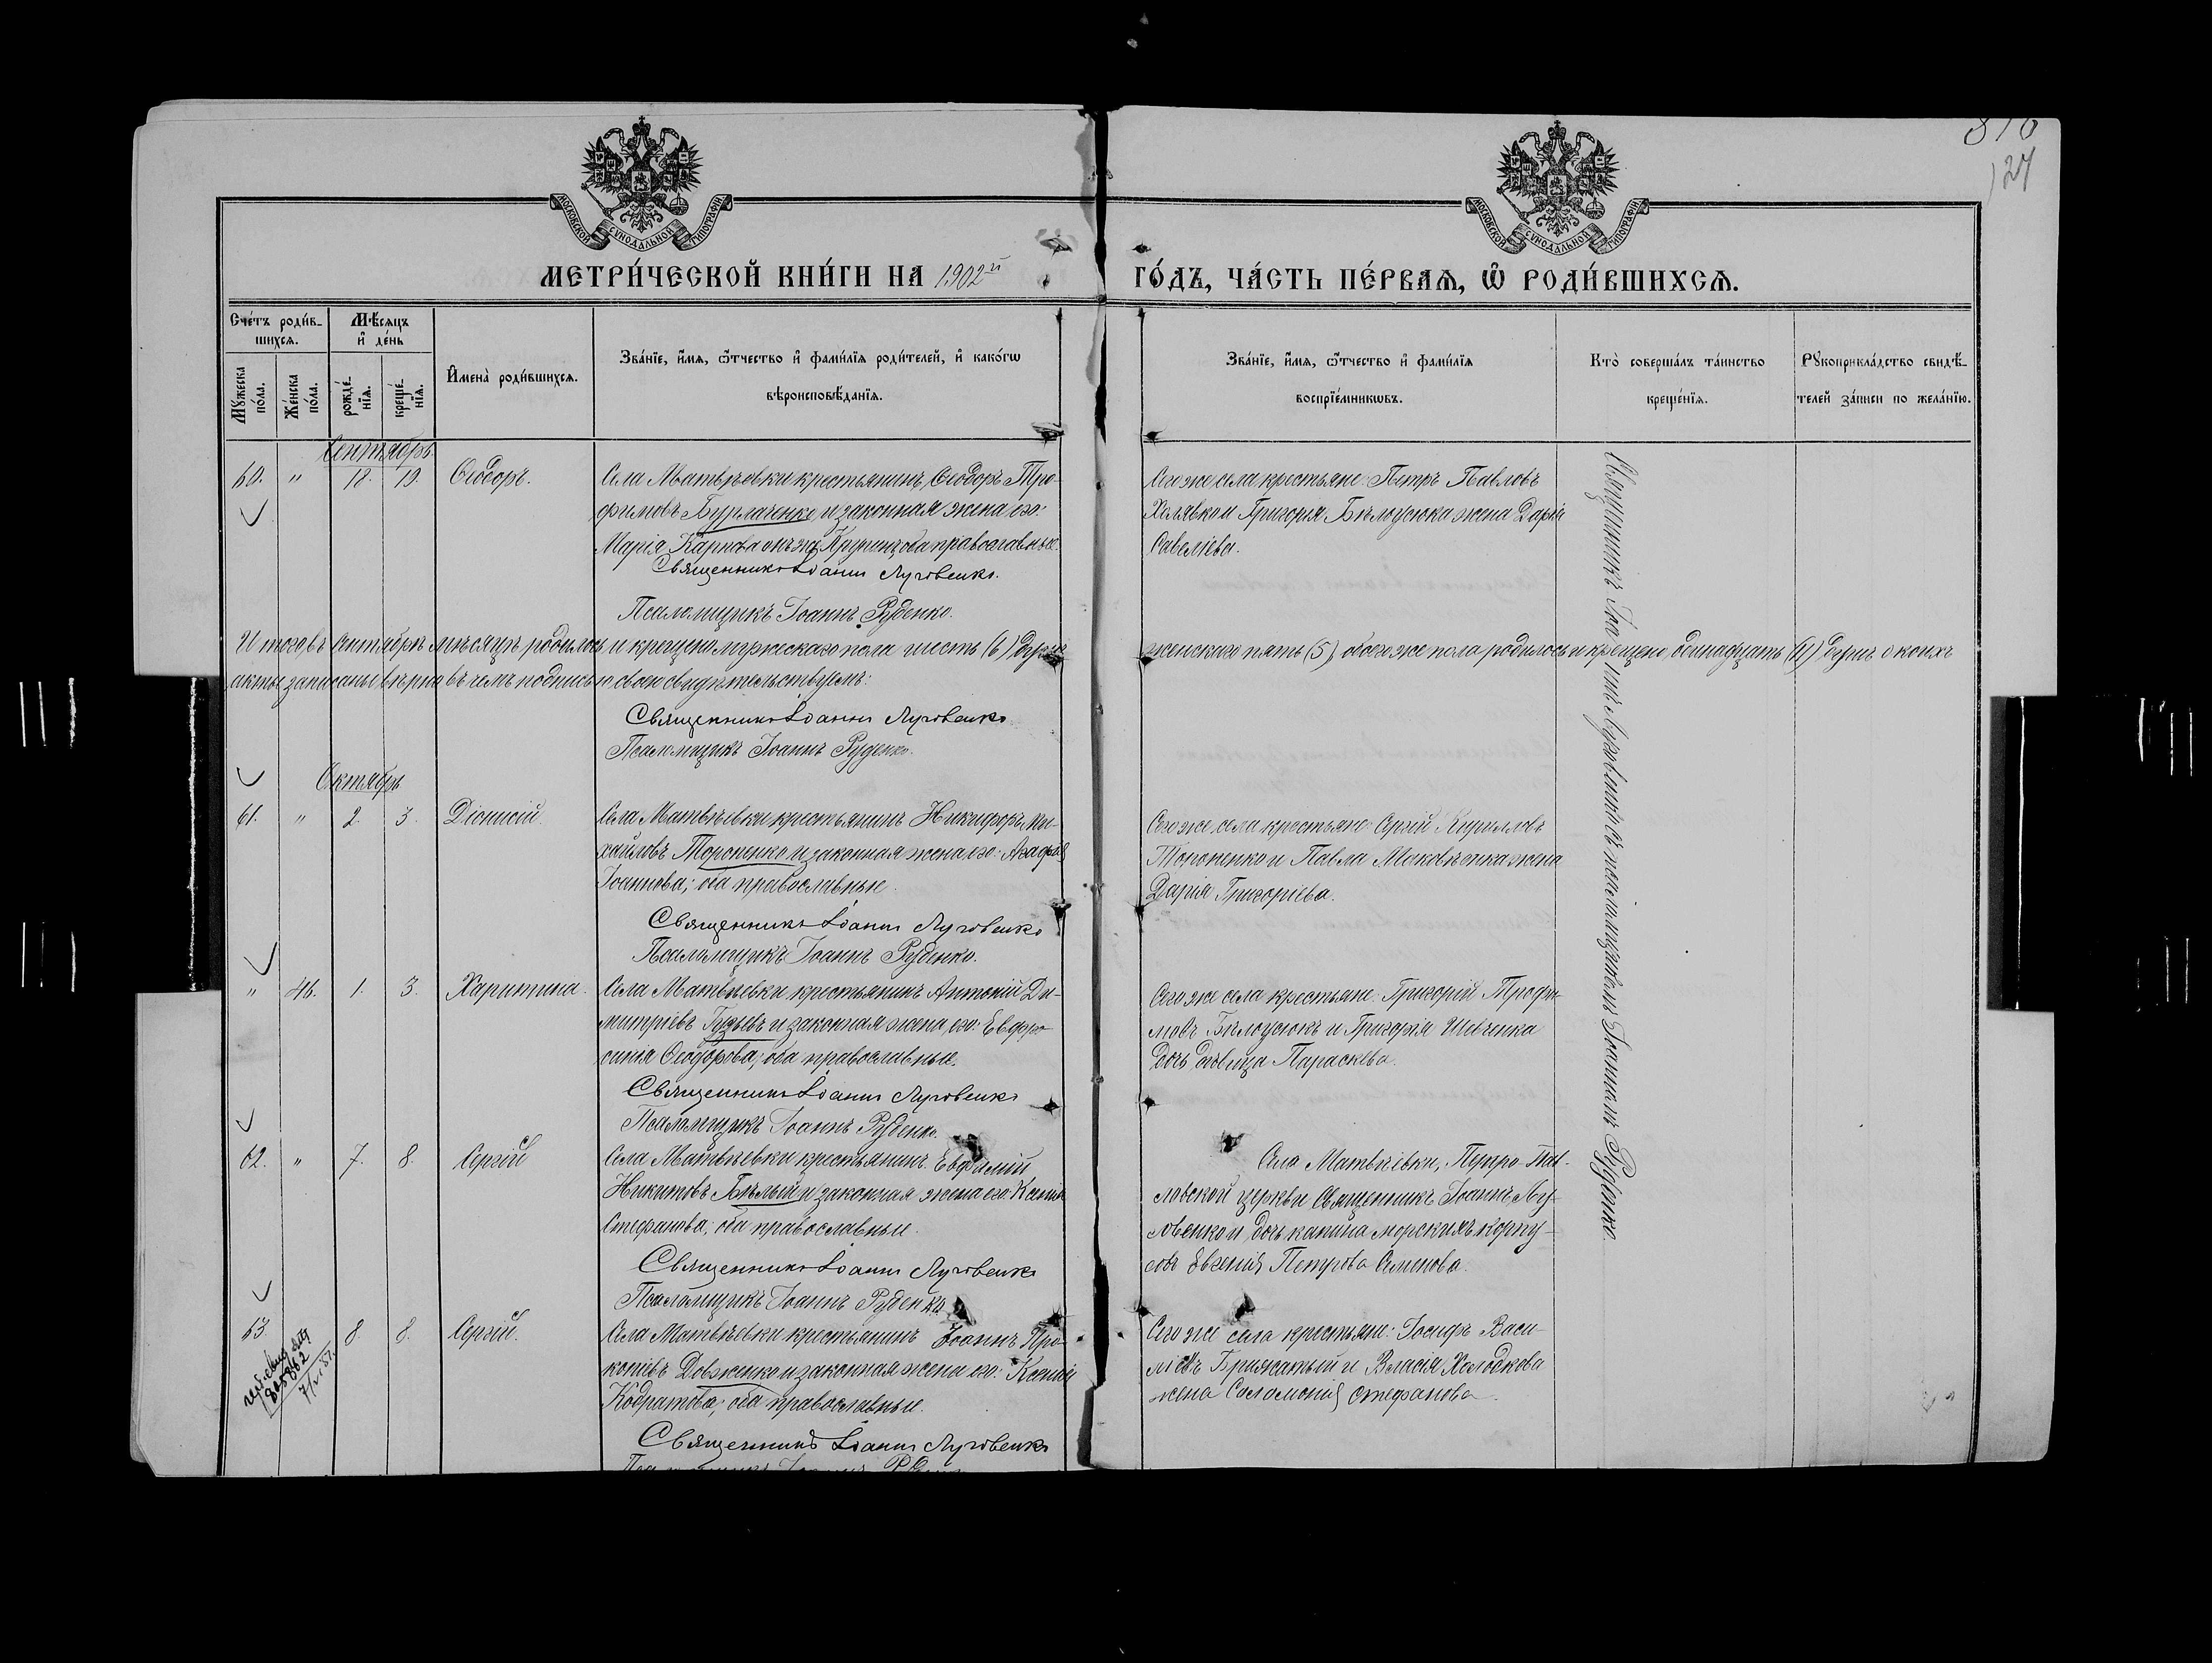 127
МОСКОВСКОЙ СѴНОДАЛЬНОЙ ТИПОГРАФІИ
МОСКОВСКОЙ СѴНОДАЛЬНОЙ ТИПОГРАФІИ
МЕТРИ́ЧЕСКОЙ КНИ́ГИ НА 1902й ГО́ДЪ, ЧА́СТЬ ПЕ́РВАѦ, Ѡ҆ РОДИ́ВШИХСѦ.
Сче́тъ роди́в-
шихсѧ.
Мꙋ́жеска по́ла.
Же́нска по́ла.
Мѣ́сѧцъ
и҆ де́нь
рожде́-
нїѧ.
креще́-
нїѧ.
И҆мена̀ роди́вшихсѧ.
Зва́нїе, и҆́мѧ, ѻ҆́тчество и҆ фами́лїѧ роди́телей, и҆ како́гѡ
вѣроисповѣ́данїѧ.
Зва́нїе, и҆́мѧ, ѻ҆́тчество и҆ фами́лїѧ
воспрїе́мникѡвъ.
Кто̀ соверша́лъ та́инство
креще́нїѧ.
Рꙋкоприкла́дство свидѣ́-
телей за́писи по жела́нїю.
Сентябрь
60. " 18. 19. Ѳеодоръ.
Села Матвѣевки крестьянинъ, Ѳеодоръ Тро-
фимовъ Бурлаченко и законная жена его:
Марія Карпова православные.
Священникъ Іоаннъ Луговенко.
Псаломщикъ Іоаннъ Руденко.
Того же села крестьяне: Петръ Павловъ
Халявко и Григорія Бѣлоусюка жена Дарія
Савеліева.
Итого въ Сентябрѣ мѣсяцѣ родилось и крещено мужескаго пола шесть (6) душъ женскаго пять (5), обоего же пола родилось и крещено одиннадцать (11) душъ о коихъ
акты записаны вѣрно въ чемъ подписью своею свидѣтельствуемъ:
Священникъ Іоаннъ Луговенко
Псаломщикъ Іоаннъ Руденко.
Октябрь
61. " 2. 3. Діонисій.
Села Матвѣевки крестьянинъ Никифоръ Ми-
хайловъ Тороненко и законная жена его: Агафія
Іоаннова; оба православные.
Священникъ Іоаннъ Луговенко
Псаломщикъ Іоаннъ Руденко.
Того же села крестьяне: Сергій Кирилловъ
Тороненко и Павла жена
Дарія Григоріева.
" 46. 1. 3. Харитина.
Села Матвѣевки крестьянинъ Антоній Ди-
митріевъ Гузьевъ и законная жена его: Евфро-
синія Ѳеодорова; оба православные.
Священникъ Іоаннъ Луговенко
Псаломщикъ Іоаннъ Руденко.
Того же села крестьяне: Григорій Трофи-
мовъ Бѣлоусюкъ и Григорія Шевченка
дочь дѣвица Параскева.
62. " 7. 8. Сергій
Села Матвѣевки крестьянинъ Евфимій
Никитовъ Бѣлый и законная жена его: Ксенія
Стефанова; оба православные.
Священникъ Іоаннъ Луговенко
Псаломщикъ Іоаннъ Руденко
Села Матвѣевки, Петро-Пав-
ловской церкви Священникъ Іоаннъ Лу-
говенко и дочь морскихъ корпу-
совъ Евгенія Петрова Семенова.
63. 8. 8. Сергій.
Села Матвѣевки крестьянинъ Іоаннъ Про-
копіевъ Довженко и законная жена его: Ксенія
Кодратова; оба православные.
Священникъ Іоаннъ Луговенко
Того же села крестьяне: Іосифъ Васи-
ліевъ и Власія Холодкова
жена Саломонія Стефанова.
Священникъ Іоаннъ Луговенко съ псаломщикомъ Іоанномъ Руденко.